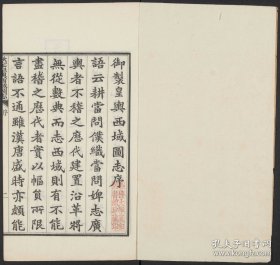 御製皇輿西域圖志序
語云耕當問僕織當問婢志廣
輿者不稽之歷代建置沿革將
無從數典而志西域則有不能
盡稽之歷代者實以幅員所限
言語不通雖漢唐盛時亦頗能
序
二